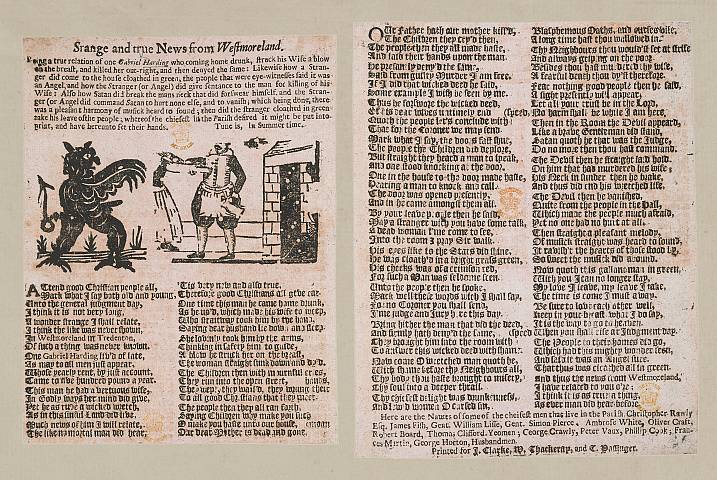 Strange and true News from Westmoreland.
Being a true relation of one Gabriel Harding who coming home drunk, struck his Wife a blow
on the breast, and killed her out-right, and then denyed the same: Likewise how a Stran-
ger did come to the house cloathed in green, the people that were eye-witnesses said it was
an Angel, and how the Stranger (or Angel) did give sentance to the man for killing of his
Wife: Also how Satan did break the mans neck that did forswear himself, and the Stran-
ger (or Angel) did command Satan to hurt none else, and to vanish, which being done, there
was a pleasant harmony of musick heard to sound; then did the Stranger cloathed in green
take his leave of the people; whereof the chiefest in the Parish desired it might be put into
print, and have hereunto set their hands. Tune is, In Summer time.
ATtend good Christian people all,
Mark what I say both old and young,
Unto the general judgement day,
I think it is not very long.
I wonder strange I shall relate,
I think the like was never shown
In Westmoreland in Tredenton,
Of such a thing was never known.
One Gabriel Harding liv'd of late,
As may to all men just appear,
Whose yearly rent, by just account,
Came to five hundred pound a year.
This man he had a vertuous wife,
In Godly ways her mind did give,
Yet he as rude a wicked wretch,
As in this sinful Land did live.
Much news of him I will relate,
The like no mortal man did hear,
'Tis very new and also true,
Therefore good Christians all give ear
One time this man he came home drunk,
As he us'd, which made his wife to weep,
Who straitway took him by the hand,
Saying dear husband lie down and sleep.
She lovingly took him by the arms,
Thinking in safety him to guide,
A blow he struck her on the breast,
The woman straight sunk down and dy'd.
The Children then with mournful cries
They ran into the open street,
They wept, they wail'd, they wrung their hands
To all good Christians that they meet.
The people then they all ran forth,
Saying Children why make you such moan
O make you haste unto our house,
Our dear Mother is dead and gone.
OUr Father hath our mother kill'd,
The Children they cry'd then,
The people then they all made haste,
And laid their hands upon the man.
He presently deny'd the same,
Said from guilty Murder I am free,
If I did that wicked deed he said,
Some example I wish be seen by me
Thus he forswore the wicked deed,
Of his dear wives untimely end
Quoth the people let's conclude with speed
That for the Coroner we may send.
Mark what I say, the door's fast shut,
The people the Children did deplore,
But straight they heard a man to speak,
And one stood knocking at the door.
One in the house to the door made haste,
Hearing a man to knock and call,
The door was opened presently,
And in he came amongst them all.
By your leave people then he said,
May a stranger with you have some talk,
A dead woman I am come to see,
Into the room I pray Sir walk.
His eyes like to the Stars did shine,
He was cloath'd in a bright grass green,
His cheeks was of a crimson red,
For such a Man was seldome seen
Unto the people then he spoke,
Mark well these words which I shall say,
For no Coroner you shall send,
I'me judge and Jury here this day.
Bring hither the man that did the deed,
and firmly hath deny'd the same,
They brought him into the room with speed
To answer this wicked deed with shame.
Now come O wretched man quoth he,
With shame before thy Neighbours all,
Thy body thou hast brought to misery,
Thy soul into a deeper thrall.
Thy chiefest delight was drunkenness,
And lewd women O cursed sin,
Blasphemous Oaths, and curses vile,
A long time thou hast wallowed in.
Thy Neighbours thou would'st set at strife
And always griping on the poor,
Besides thou hast murdered thy wife,
A fearful death thou dy'st therefore.
Fear nothing good people then he said,
A sight presently will appear,
Let all your trust be in the Lord,
No harm shall be while I am here,
Then in the Room the Devil appear'd,
Like a brave Gentleman did stand,
Satan quoth he that was the Judge,
Do no more then thou hast command.
The Devil then he straight laid hold
On him that had murdered his wife
His Neck in sunder then he brake,
And thus did end his wretched life.
The Devil then he vanished,
Quite from the people in the Hall,
Which made the people much afraid,
Yet no one had no hurt at all.
Then straight a pleasant melody,
Of musick straight was heard to sound,
It ravisht the hearts of those stood by,
So sweet the musick did abound.
Now quoth this gallant man in green,
With you I can no longer stay,
My love I leave, my leave I take,
The time is come I must away.
Be sure to love each other well,
Keep in your breast what I do say,
It is the way to go to heaven,
When you shall rise at Judgement day.
The People to their homes did go,
Which had this mighty wonder seen,
And said it was an Angel sure
That thus was cloathed all in green.
And thus the news from Westmoreland,
I have related to you o're:
I think it is as true a thing,
As ever man did hear before.
Here are the Names of some of the chiefest men that live in the Parish, Christopher Rawly
Esq. James Fish, Gent. William Lisse, Gent. Simon Pierce, Ambrose White, Oliver Craft,
Robert Board, Thomas Clifford, Yeomen; George Crawly, Peter Vaux, Phillip Cook, Fran-
ces Martin, George Horton, Husbandmen.
Printed for J. Clarke, W. Thackeray, and T. Passinger.